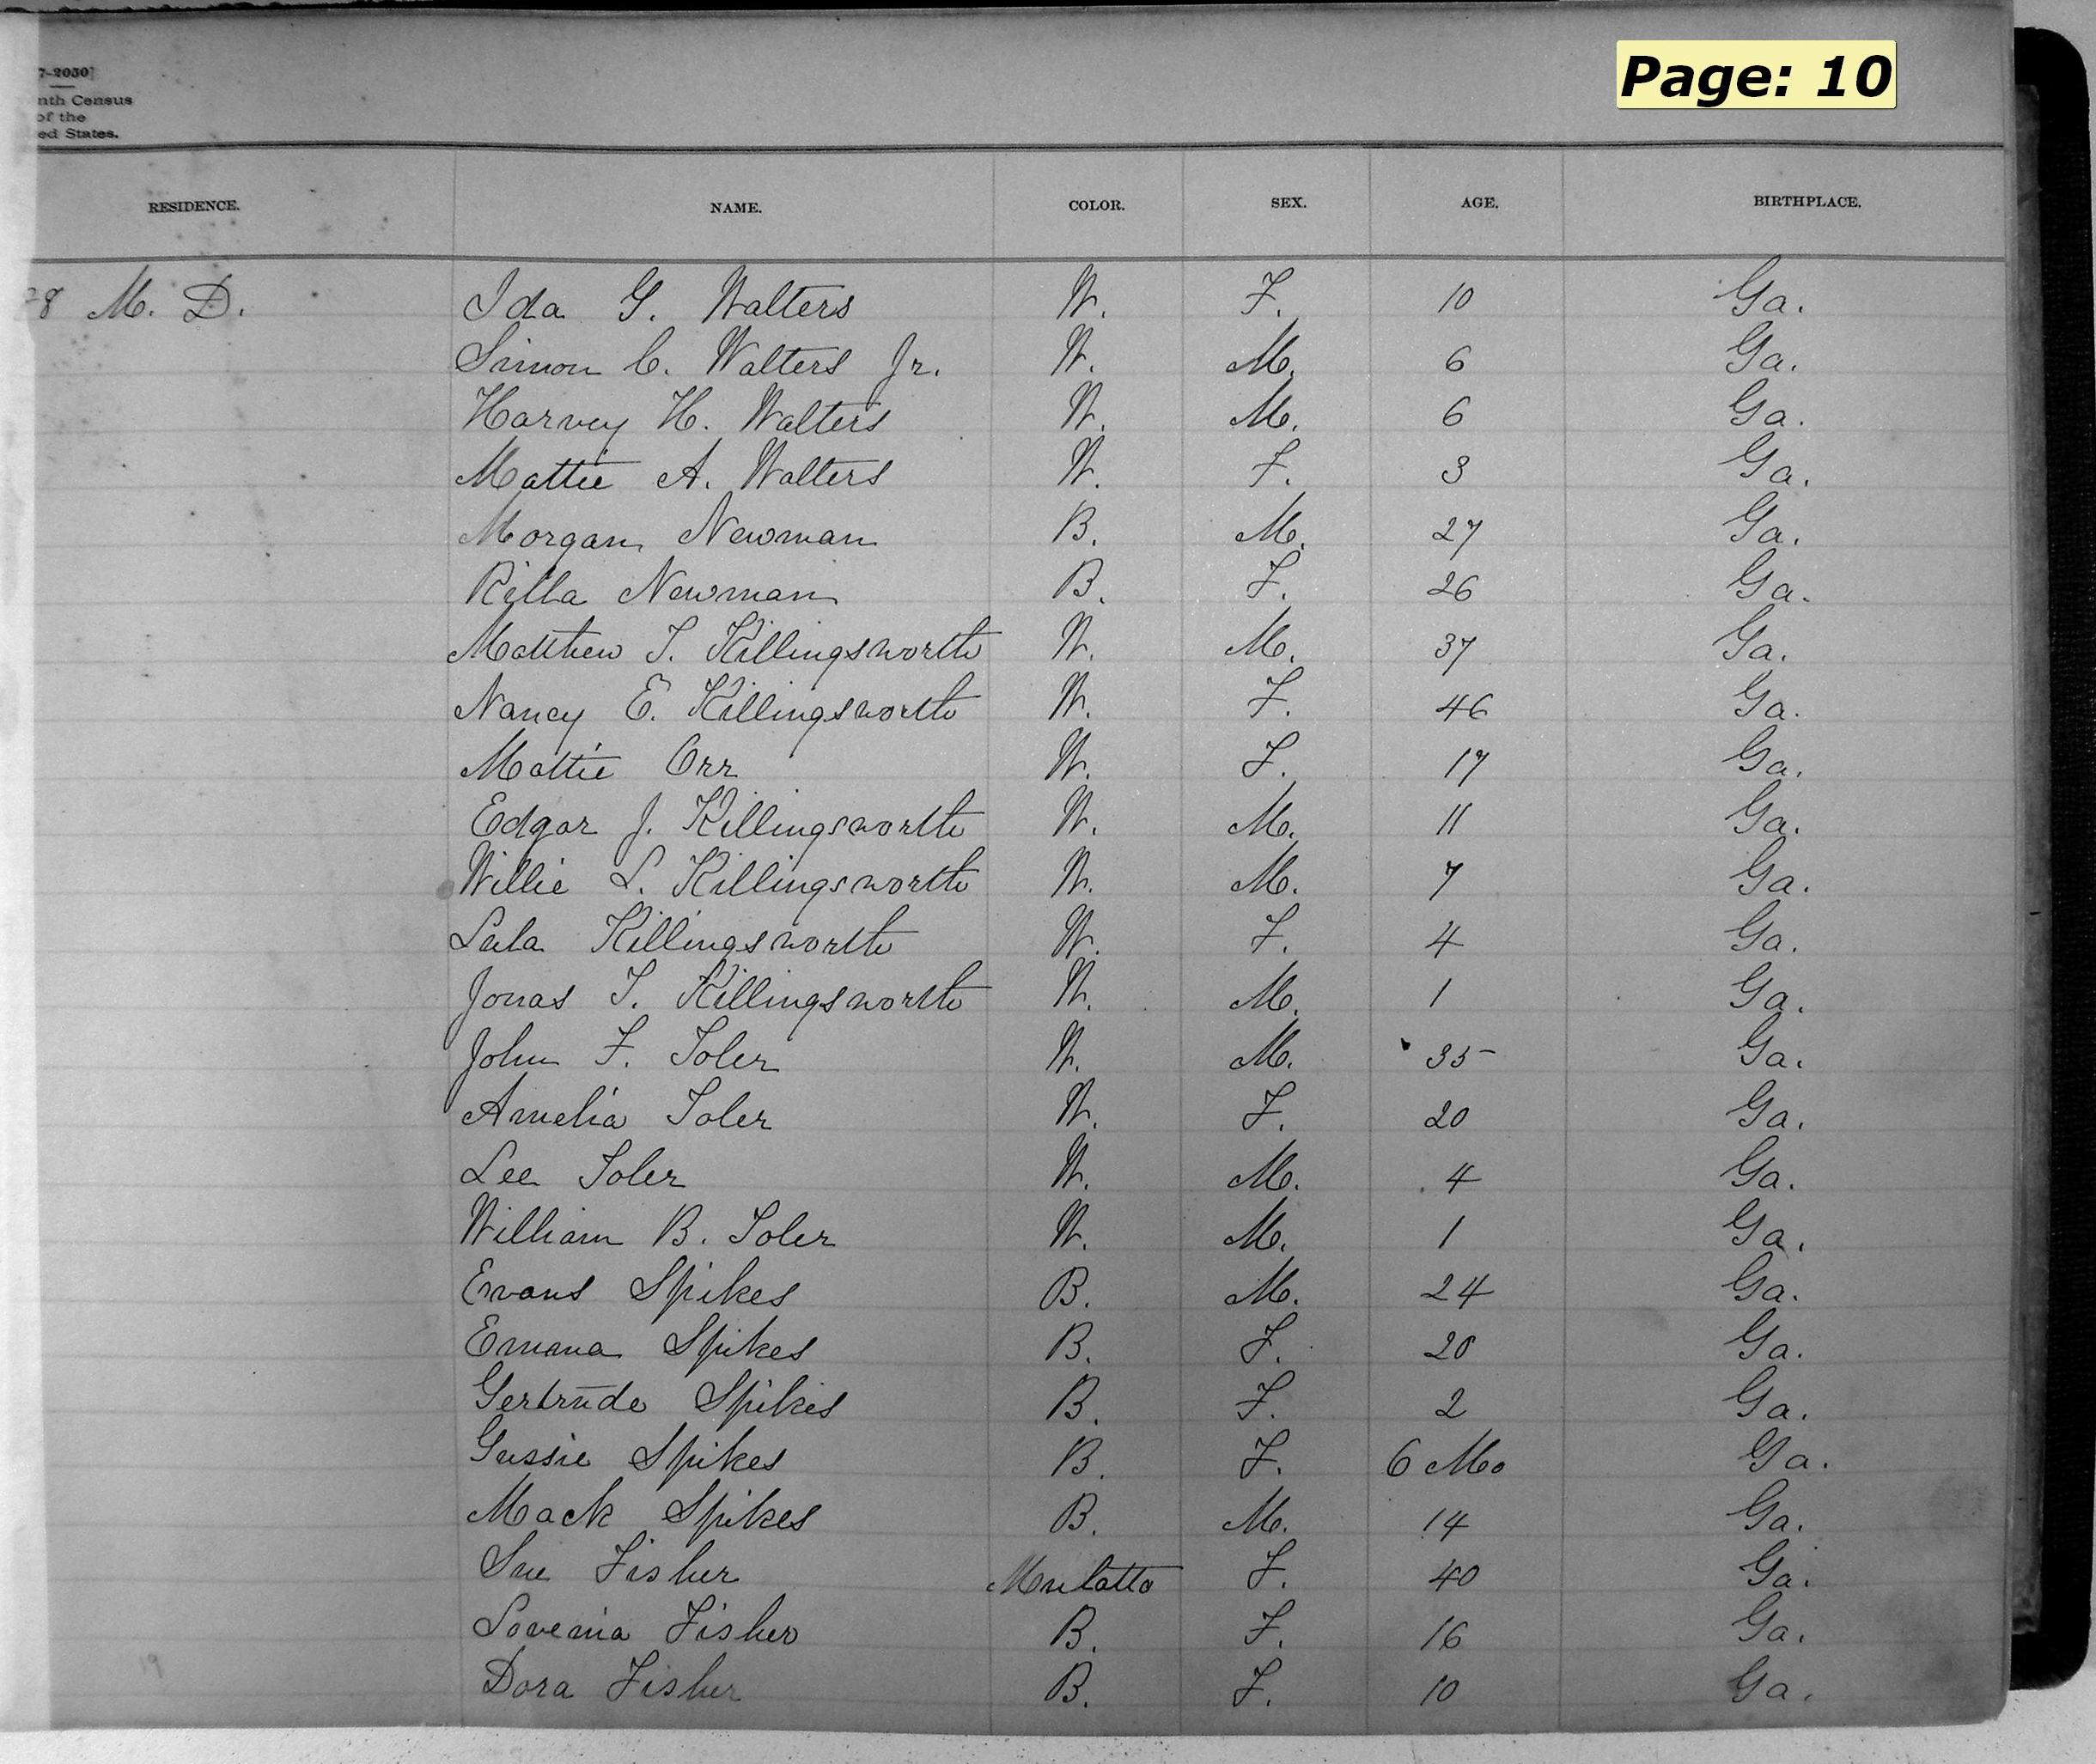 Page: 10
7-2050]
nth Census
of the
ed States.
RESIDENCE. NAME. COLOR. SEX. AGE. BIRTHPLACE.
28 M. D. Ida G. Walters W. F. 10 Ga.
Simon C. Walters Jr. W. M. 6 Ga.
Harvey H. Walters W. M. 6 Ga.
Mattie A. Walters W. F. 3 Ga.
Morgan Newman B. M. 27 Ga.
Rilla Newman B. F. 26 Ga.
Matthew T. Killingsworth W. M. 37 Ga.
Nancy E. Killingsworth W. F. 46 Ga.
Mattie Orr W. F. 17 Ga.
Edgar J. Killingsworth W. M. 11 Ga.
Willie L. Killingsworth W. M. 7 Ga.
Lula Killingsworth W. F. 4 Ga.
Jonas T. Killingsworth W. M. 1 Ga.
John F. Toler W. M. 35 Ga.
Amelia Toler W. F. 20 Ga.
Lee Toler W. M. 4 Ga.
William B. Toler W. M. 1 Ga.
Evans Spikes B. M. 24 Ga.
Emma Spikes B. F. 20 Ga.
Gertrude Spikes B. F. 2 Ga.
Gussie Spikes B. F. 6 Mo Ga.
Mack Spikes B. M. 14 Ga.
Sue Fisher Mulatto F. 40 Ga.
Lovenia Fisher B. F. 16 Ga.
Dora Fisher B. F. 10 Ga.
19